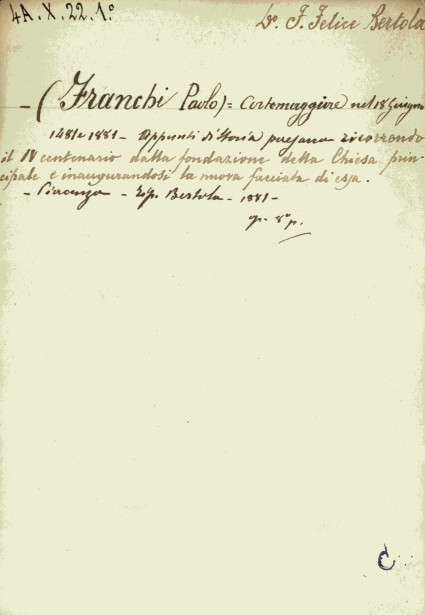 4A.X.22.1.º
Dº. F. Felice Bertola
- (Franchi Paolo) = Cortemaggiore nel 18 Giugno
1481 e 1881 - Appunti di Storia paesana ricorrendo
il IV centenario dalla fondazione della Chiesa prin-
cipale e inaugurandosi la nuova facciata di essa.
- Piacenza - Tip. Bertola - 1881 -
8º p.